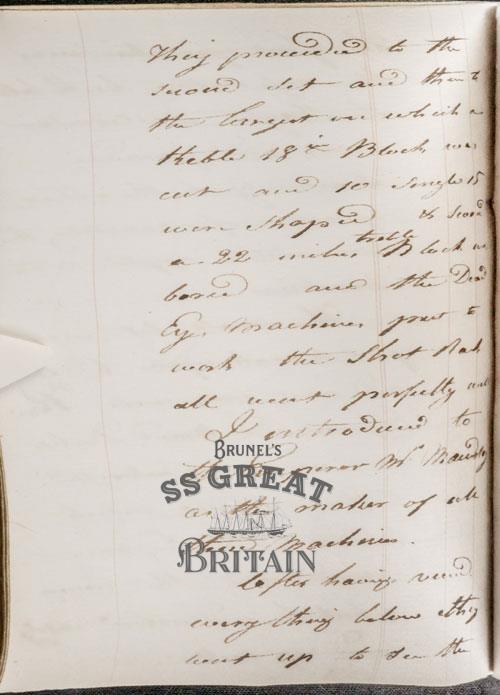 They proceeded to the
second Set and then to
the largest on which a
treble 18 in Block was
cut and 10 Single 15
were Shaped & Scored
a 22 inches treble Block was
bored and the Dead
Eye Machines put to
work the Shot Rack
all went perfectly well
I introduced to
the Emperor Mr Maudsly
as the maker of all
these Machines.
After having viewed
everything below they
went up to See the
BRUNEL'S
SS GREAT
BRITAIN